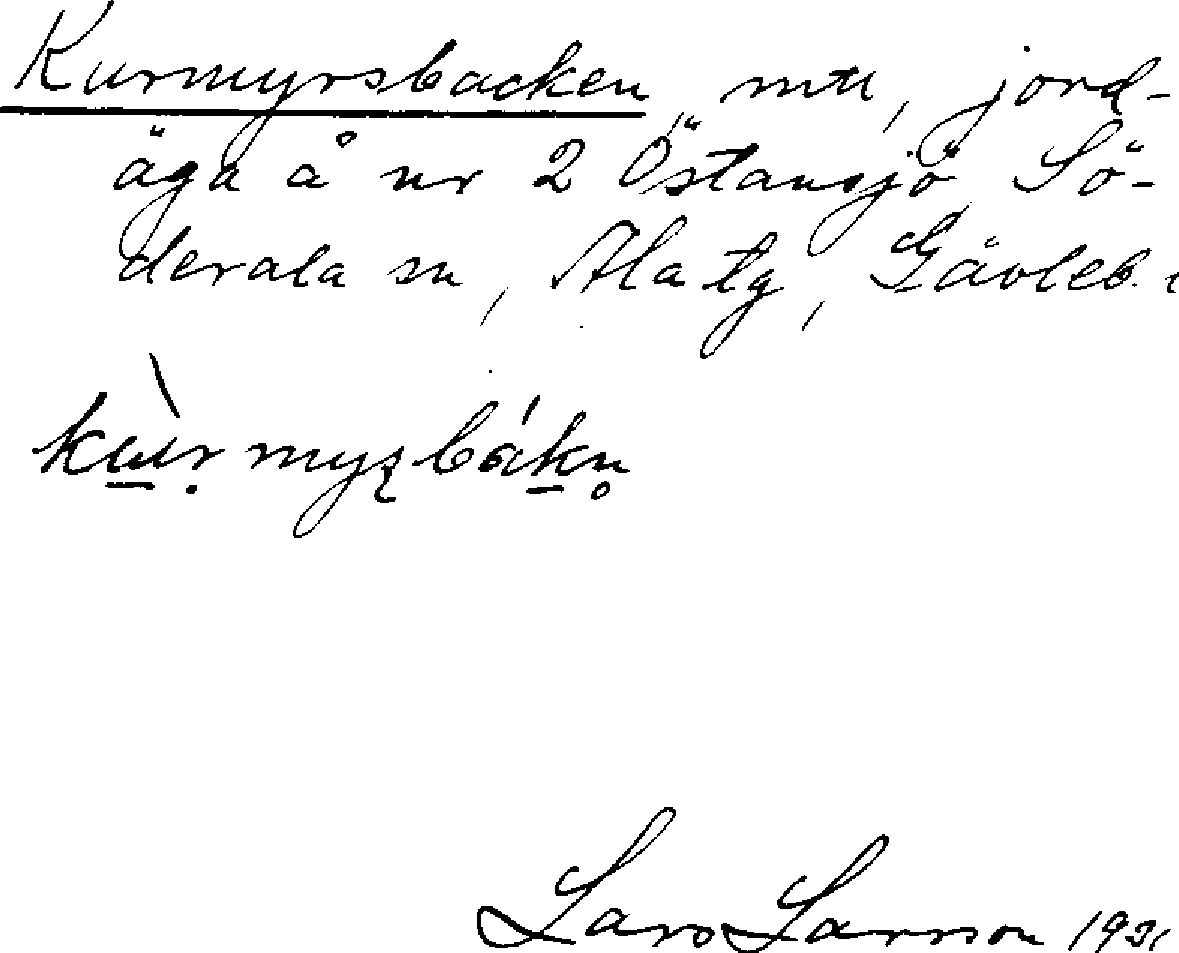 Kurmyrsbacken, mtr, jord-
äga å nr 2 Östansjö, Sö-
derala sn, Ala tg, Gävleb.
kùrmyʂbákn̥
Lars Larsson 1931